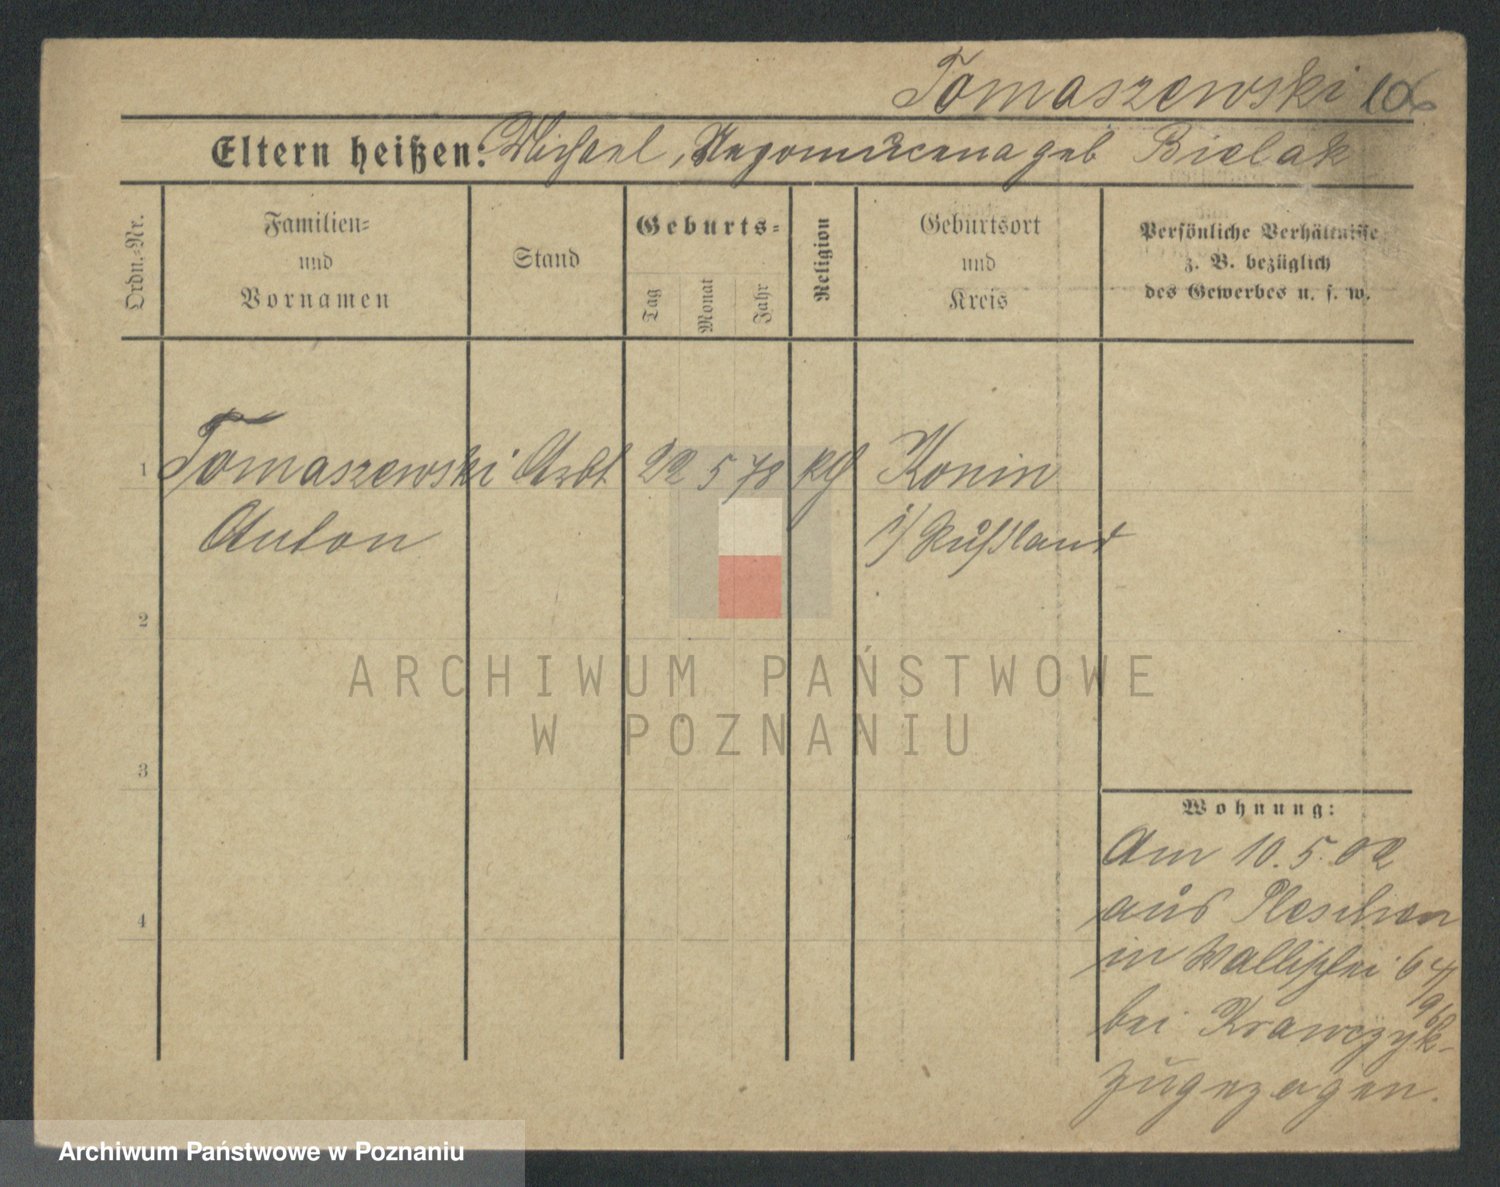 Tomaszewski 106
Eltern heißen: Michael, Nepomucena geb Bielak
Ordn.-Nr.
Familien-
und
Vornamen
Stand
Geburts-
Tag
Monat
Jahr
Religion
Geburtsort
und
Kreis
Persönliche Verhältnisse
z. B. bezüglich
des Gewerbes u. s. w.
1 Tomaszewski 22 5 78 Konin
Anton i/ Rußland
2
3
4
ARCHIWUM PAŃSTWOWE
W POZNANIU
Wohnung:
Am 10.5.02
aus Pleschen
in Wallischei 64/
bei Krawczyk
zugezogen.
Archiwum Państwowe w Poznaniu